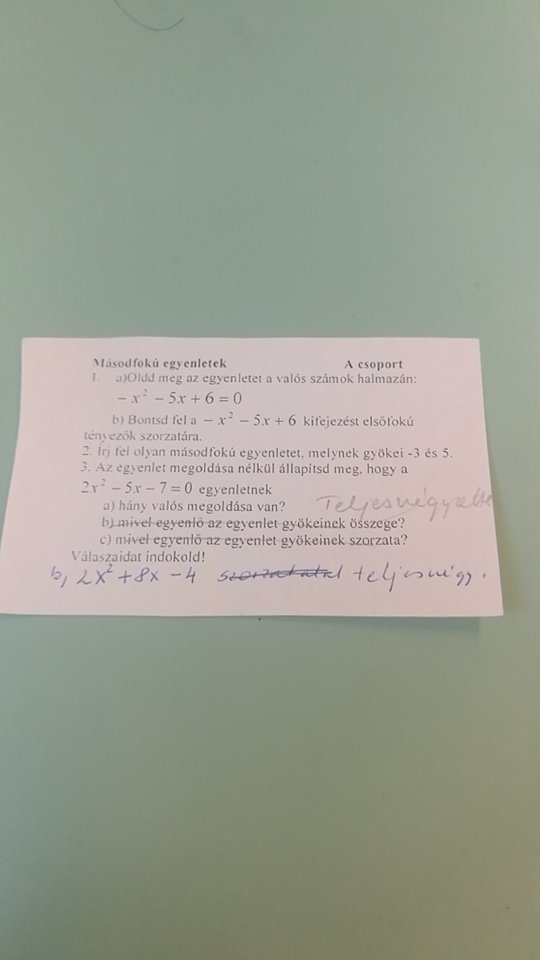 Másodfokú egyenletek A csoport
1. a)Oldd meg az egyenletet a valós számok halmazán:
− x² − 5x + 6 = 0
b) Bontsd fel a − x² − 5x + 6 kifejezést elsőfokú
tényezők szorzatára.
2. Írj fel olyan másodfokú egyenletet, melynek gyökei -3 és 5.
3. Az egyenlet megoldása nélkül állapítsd meg, hogy a
2x² − 5x − 7 = 0 egyenletnek
a) hány valós megoldása van? Teljesnégyzetté
b) mivel egyenlő az egyenlet gyökeinek összege?
c) mivel egyenlő az egyenlet gyökeinek szorzata?
Válaszaidat indokold!
b, 2x² + 8x − 4 teljesnégy.